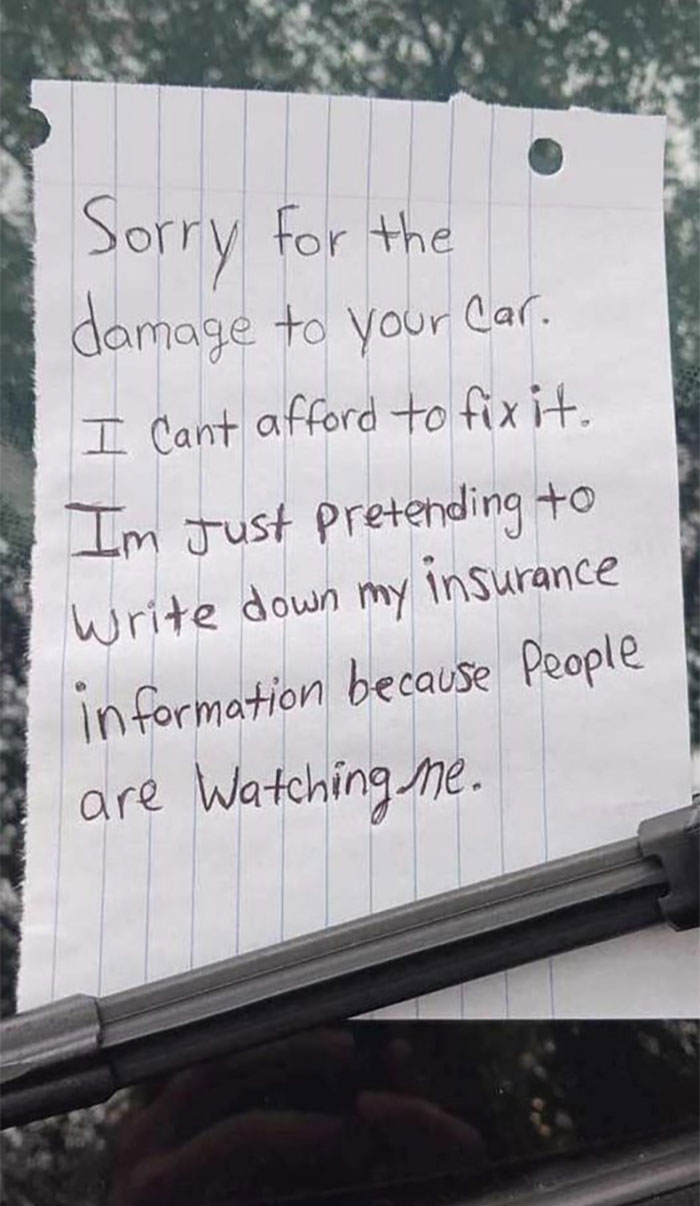 Sorry for the
damage to your Car.
I Cant afford to fix it.
Im Just Pretending to
Write down my insurance
information because People
are Watching me.